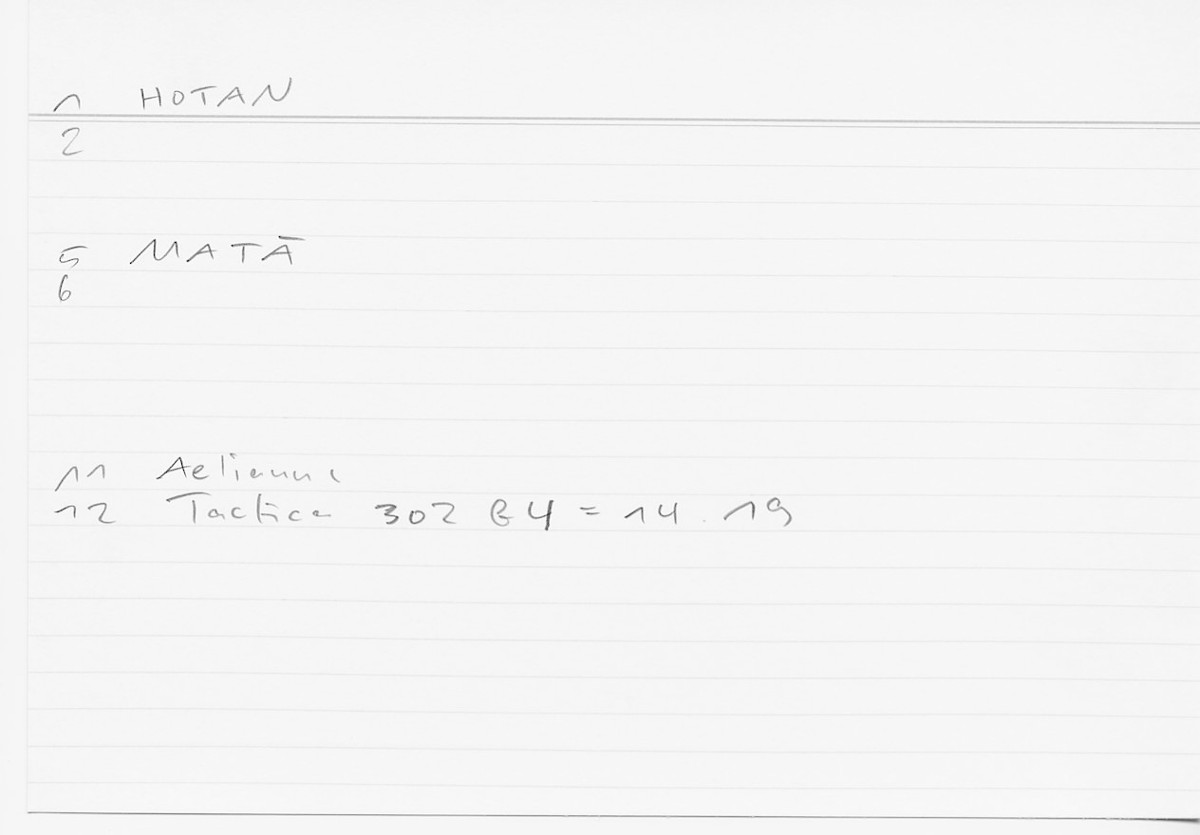 1 HOTAN
2
5 MATĀ
6
11 Aelianus
12 Tactica 302 B4 = 14.19